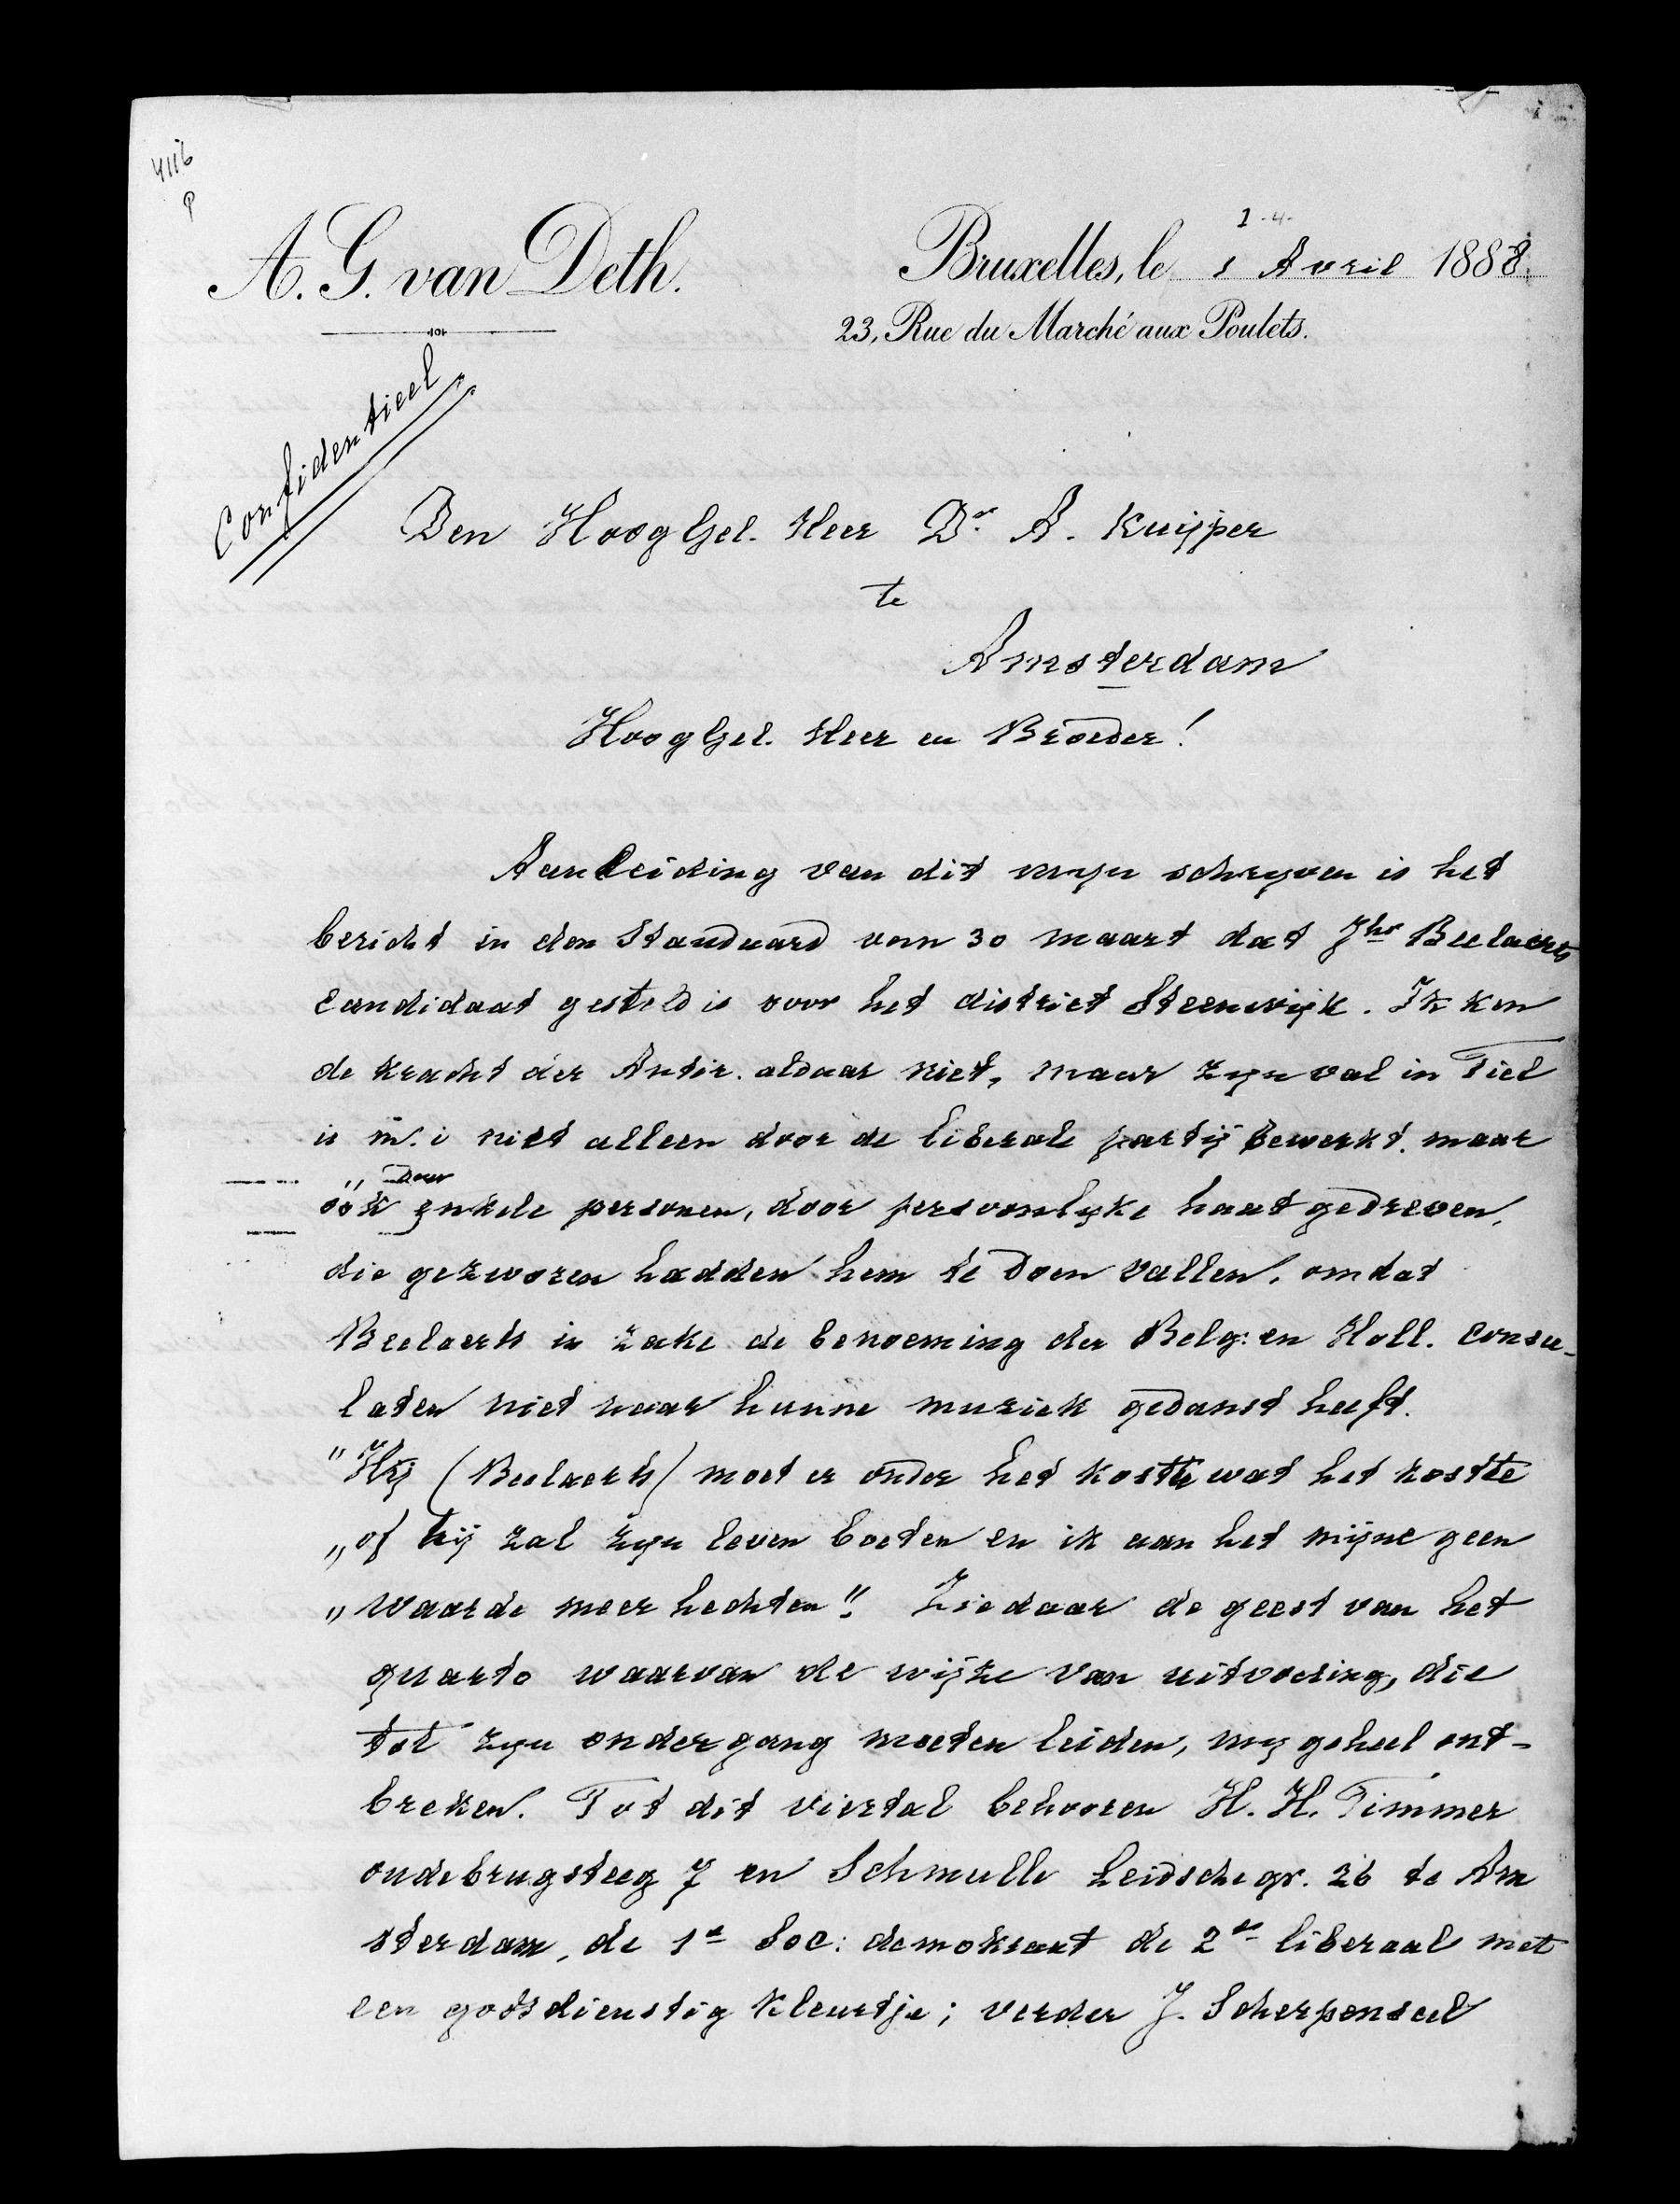 4116
P
1-4-
A. G. van Deth.
Bruxelles, le 1 Avril 1888.
23, Rue du Marché aux Poulets.
Confidentieel
Den HoogGel. Heer Dr. A. Kuijper
te
Amsterdam
HoogGel. Heer en Broeder!
Aanleiding van dit mijn schrijven is het
bericht in den Standaard van 30 maart dat Jhr Beelaerts
Candidaat gesteld is voor het district Steenwijk. Ik ken
de kracht der Antir. aldaar niet, maar zijn val in Tiel
is m. i niet alleen door de liberale partij bewerkt. maar
óók door enkele personen, door persoonlijke haat gedreven,
die gezworen hadden hem te doen vallen, omdat
Beelaerts in zake de benoeming der Belg. en Holl. Consu-
laten niet naar hunne muziek gedanst heeft.
"Hij (Beelaerts) moet er onder het koste wat het koste
„of hij zal zijn leven boeten en ik aan het mijne geen
„waarde meer hechten". Ziedaar de geest van het
quarto waarvan de wijze van uitvoering, die
tot zijn ondergang moeten leiden, mij geheel ont-
breken. Tot dit viertal behooren H. H. Timmer
oudebrugsteeg 7 en Schmulle Leidschegr. 26 te Am
sterdam, de 1e Soc: demokraat de 2de liberaal met
een godsdienstig kleurtje; verder J. Scherpenseel